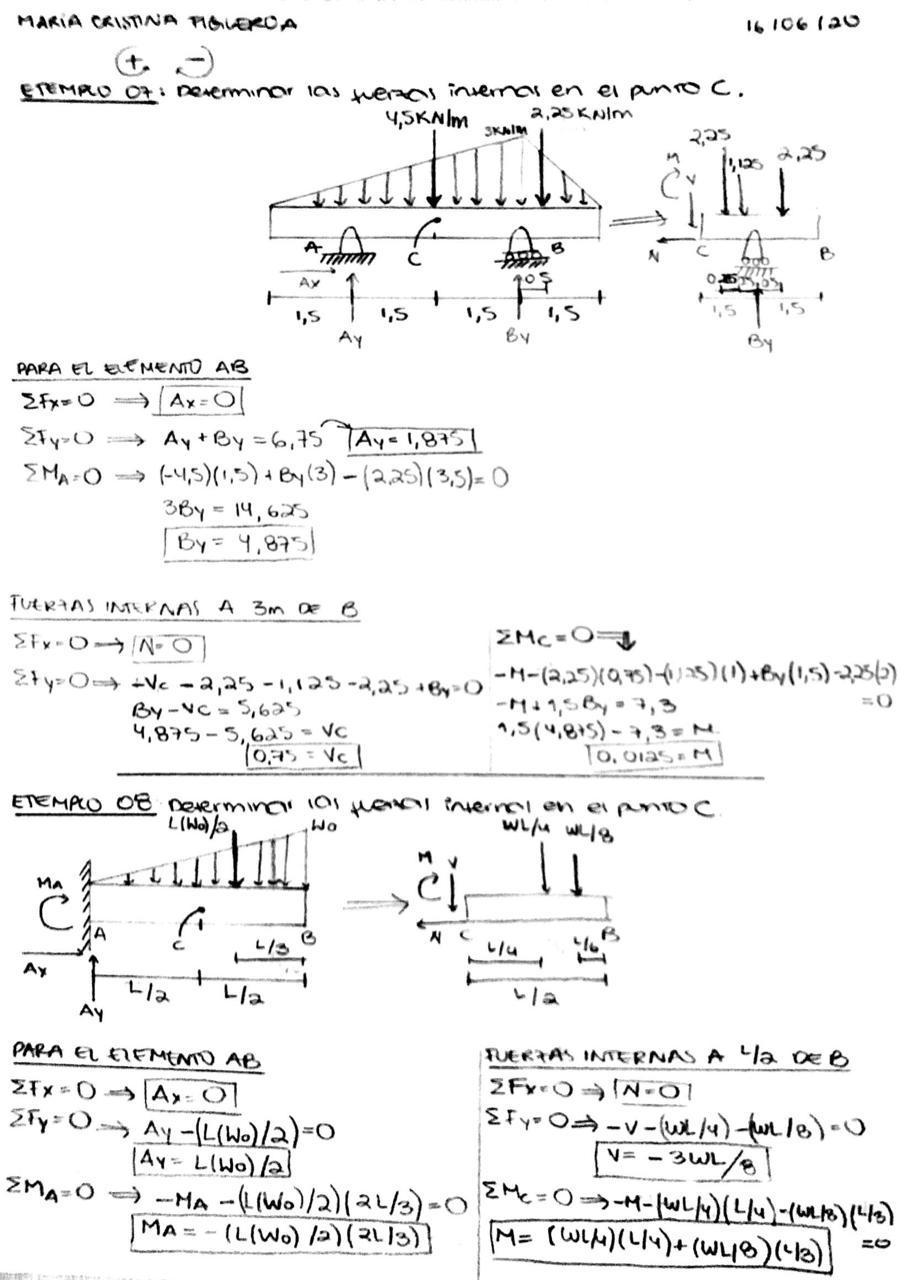 MARÍA CRISTINA FIGUEROA
16/06/20
+ -
EJEMPLO 07: Determinar las fuerzas internas en el punto C.
4,5KN/m 3KN/m 2,25KN/m
2,25 1,125 2,25
M V
A C B
N C B
Ax 0,5
1,5 1,5 1,5 1,5
1,5 1,5
Ay By
By
PARA EL ELEMENTO AB
ΣFx=0 ⟹ Ax=0
ΣFy=0 ⟹ Ay+By=6,75 Ay=1,875
ΣMA=0 ⟹ (-4,5)(1,5)+By(3)-(2,25)(3,5)=0
3By = 14,625
By = 4,875
FUERZAS INTERNAS A 3m DE B
ΣFx=0 → N=0
ΣFy=0 ⟹ -Vc-2,25-1,125-2,25+By=0
By-Vc=5,625
4,875-5,625=Vc
0,75=Vc
ΣMc=0
-M-(2,25)(0,75)-(1,125)(1)+By(1,5)-2,25(2)
=0
-M+1,5By=7,3
1,5(4,875)-7,3=M
0,0125=M
EJEMPLO 08 Determinar las fuerzas internas en el punto C.
L(Wo)/2 Wo
WL/4 WL/8
MA
M V
A C B
N C B
L/3
L/4 L/6
Ax
L/2 L/2
L/2
Ay
PARA EL ELEMENTO AB
ΣFx=0 ⟹ Ax=0
ΣFy=0 → Ay-(L(Wo)/2)=0
Ay=L(Wo)/2
ΣMA=0 ⟹ -MA-(L(Wo)/2)(2L/3)=0
MA=-(L(Wo)/2)(2L/3)
FUERZAS INTERNAS A L/2 DE B
ΣFx=0 ⟹ N=0
ΣFy=0 ⟹ -V-(WL/4)-(WL/8)=0
V=-3WL/8
ΣMc=0 ⟹ -M-(WL/4)(L/4)-(WL/8)(L/3)
=0
M=(WL/4)(L/4)+(WL/8)(L/3)